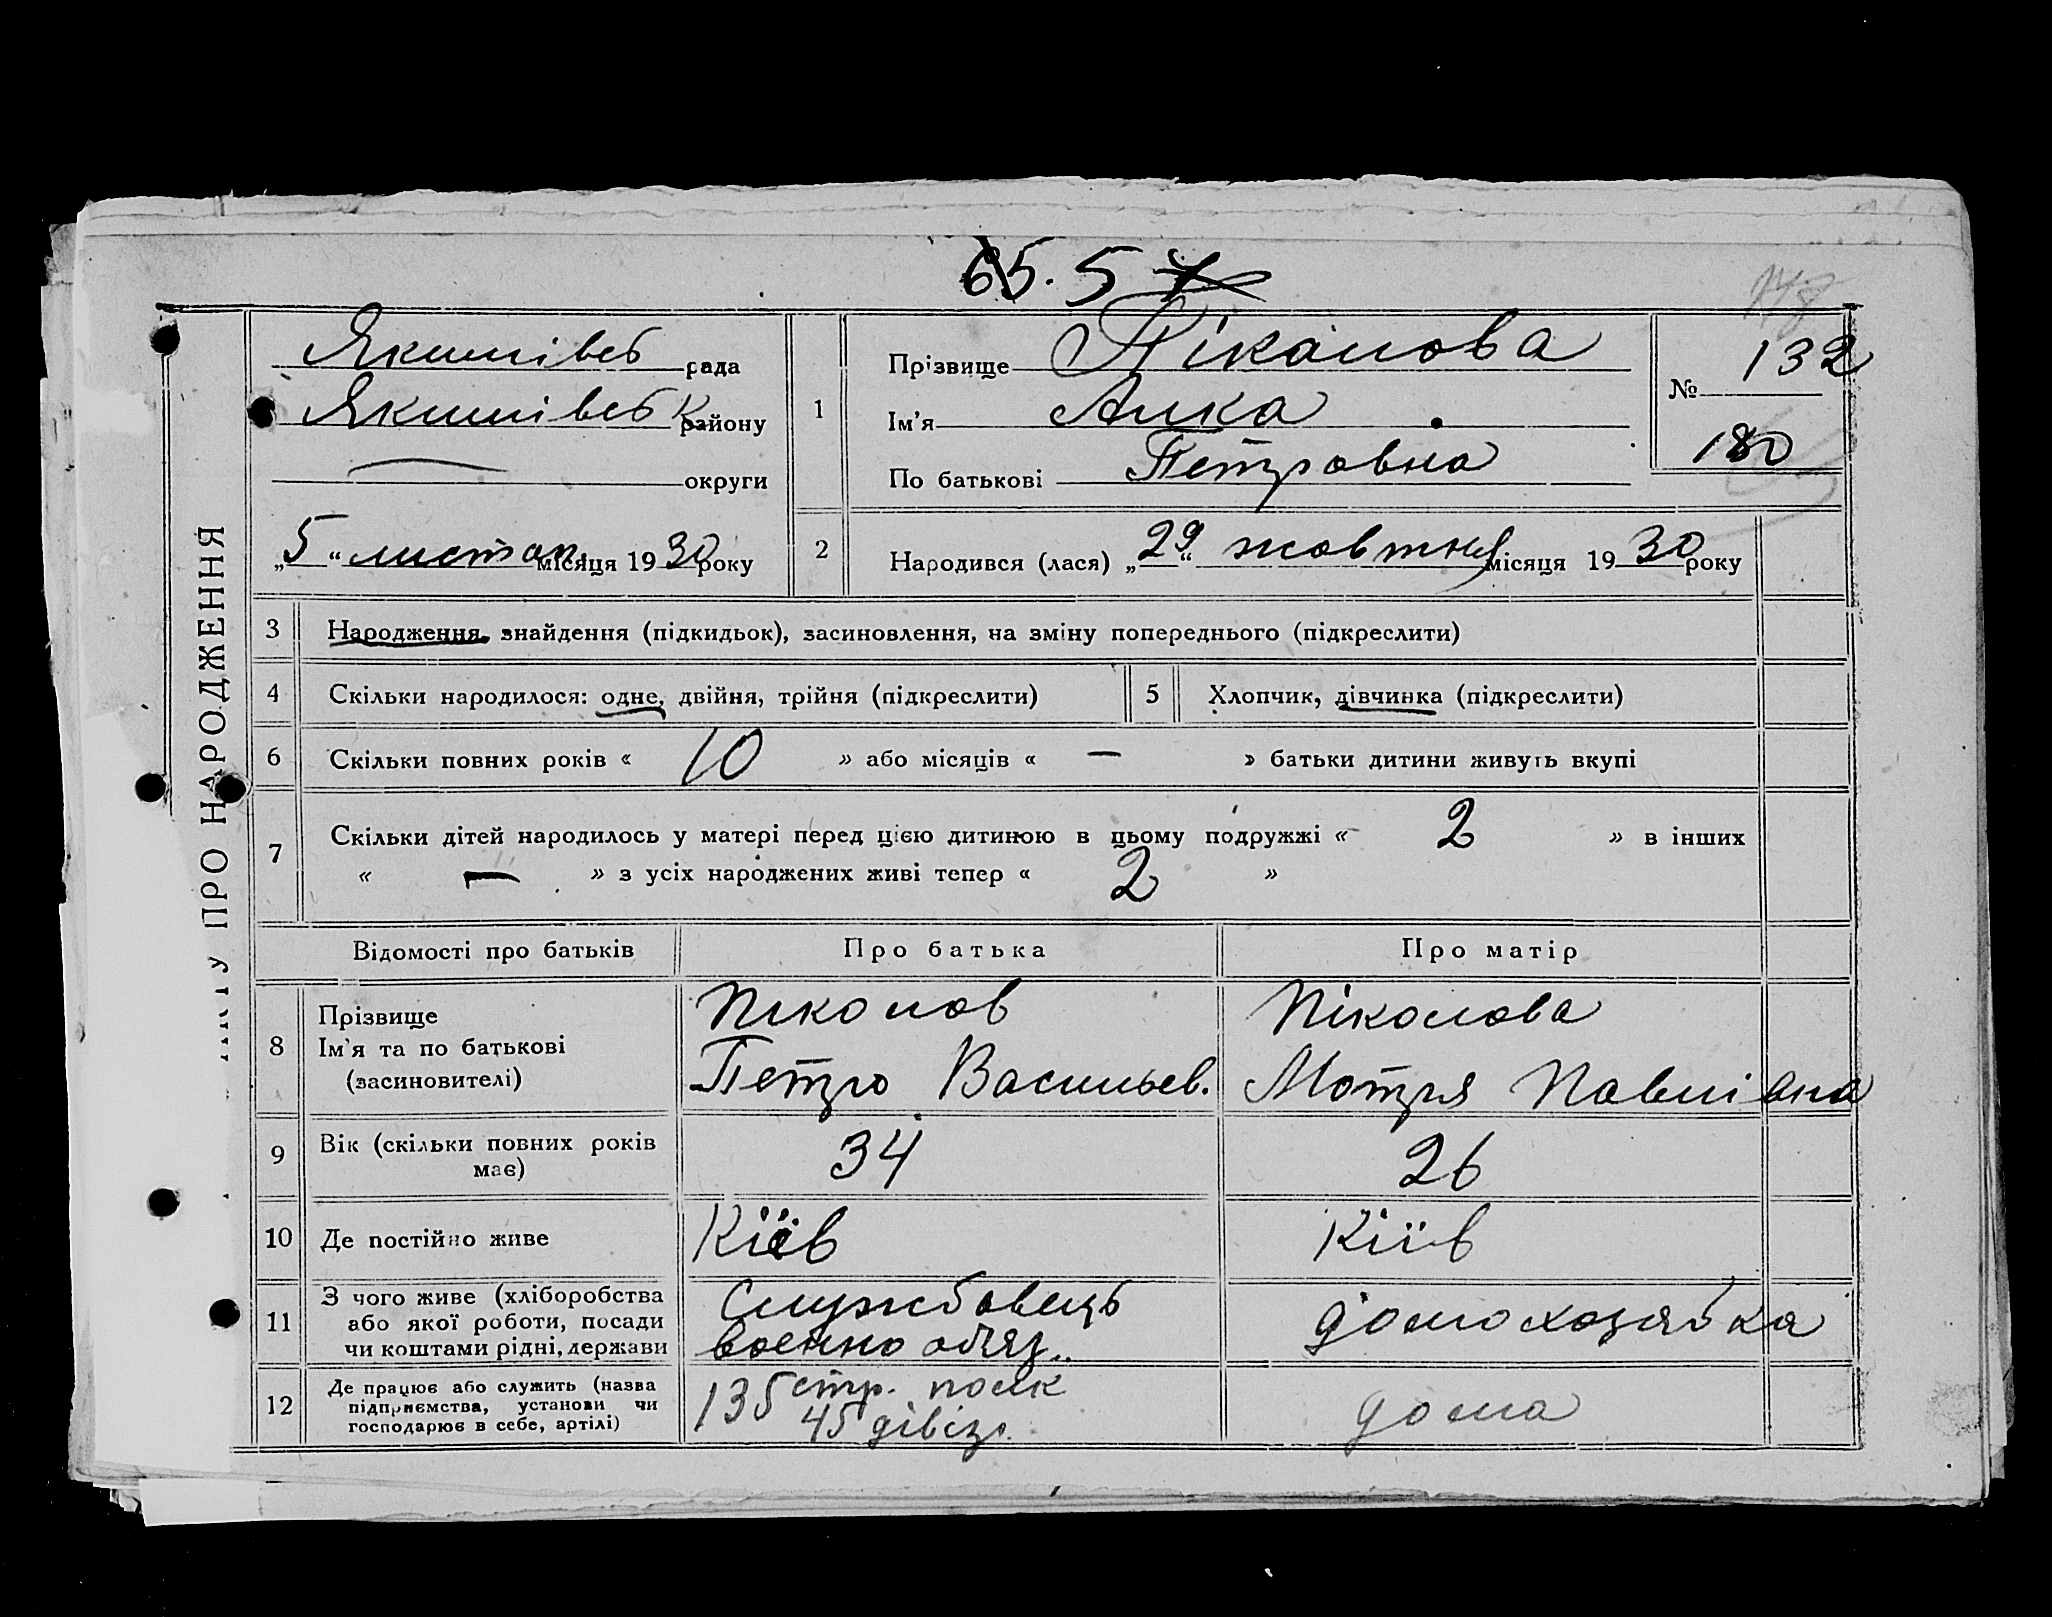 65. 5
Якимівсь рада
Якимівсь к району
округи
„5“ листоп. місяця 1930 року
1
Прізвище Ніколова
Ім'я Алка
По батькові Петровна
№ 132
180
2
Народився (лася) „29“ жовтня місяця 1930 року
ПРО НАРОДЖЕННЯ
3 Народження, знайдення (підкидьок), засиновлення, на зміну попереднього (підкреслити)
4 Скільки народилося: одне, двійня, трійня (підкреслити)
5 Хлопчик, дівчинка (підкреслити)
6 Скільки повних років « 10 » або місяців « — » батьки дитини живуть вкупі
7 Скільки дітей народилось у матері перед цією дитиною в цьому подружжі « 2 » в інших
« — » з усіх народжених живі тепер « 2 »
Відомості про батьків Про батька Про матір
8 Прізвище
Ім'я та по батькові
(засиновителі)
Ніколов
Петро Васильев.
Ніколова
Мотря Павлівна
9 Вік (скільки повних років
має)
34
26
10 Де постійно живе
Київ
Київ
11 З чого живе (хліборобства
або якої роботи, посади
чи коштами рідні, держави
Службовець
военно обяз..
домохозяйка
12 Де працює або служить (назва
підприємства, установи чи
господарює в себе, артілі)
135 стр. полк
45 дівіз.
дома